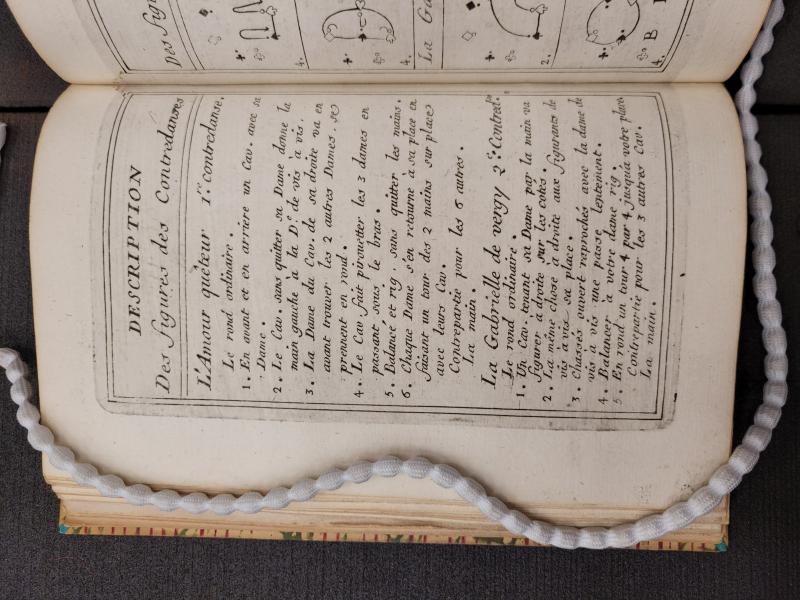 Des fig
La Ga
4.
4.
2.
4.
B
DESCRIPTION
Des figures des Contredanses
L'Amour quêteur 1.re contredanse.
Le rond ordinaire.
1. En avant et en arriere un Cav. avec sa
Dame.
2. Le Cav. sans quitter sa Dame donne la
main gauche à la D.e de vis à vis.
3. La Dame du Cav. de sa droite va en
avant trouver les 2 autres Dames. se
prennent en rond.
4. Le Cav. fait pirouetter les 3 dames en
passant sous le bras.
5. Balancé et rig. sans quitter les mains.
6. Chaque Dame s'en retourne à sa place en
faisant un tour des 2 mains sur place
avec leurs Cav.
Contrepartie pour les 6 autres.
La main.
La Gabrielle de vergy 2.e Contred.
Le rond ordinaire.
1. Un Cav. tenant sa Dame par la main va
figurer à droite sur les cotés.
2. La même chose à droite aux figurants de
vis à vis sa place.
3. Chassés ouvert raprochés avec la dame de
vis à vis une passe lentement.
4. Balancer à votre dame rig.
5. En rond un tour 4 par 4 jusqu'à votre place
Contrepartie pour les 3 autres Cav.
La main.